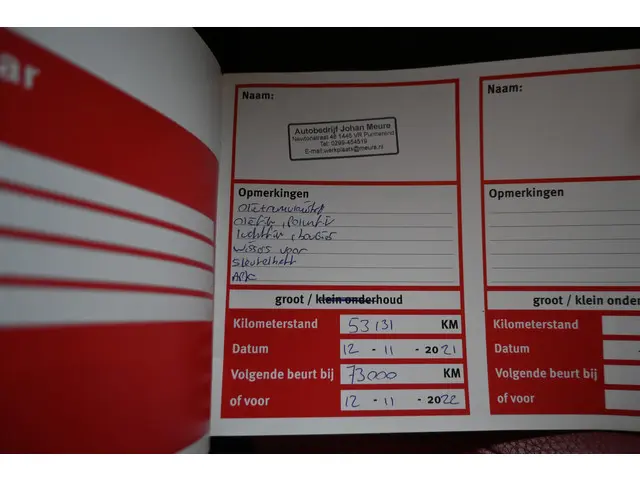 ar
Naam:
Autobedrijf Johan Meura
Newtonstraat 46 1446 VR Purmerend
Tel: 0299-454519
E-mail:werkplaats@meura.nl
Opmerkingen
wissers voor
Sleutelbatt
APK
groot / klein onderhoud
Kilometerstand 53131 KM
Datum 12 - 11 - 2021
Volgende beurt bij 73000 KM
of voor 12 - 11 - 2022
Naam:
Opmerkingen
groot / klein
Kilometerstand
Datum
Volgende beurt bij
of voor